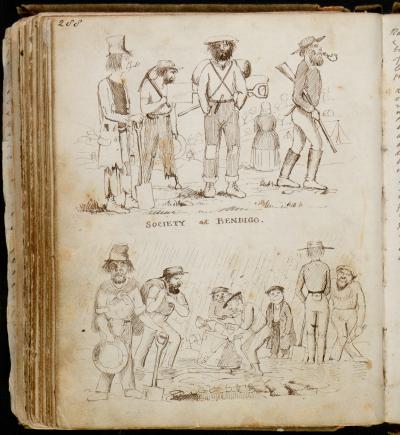 288
SOCIETY at BENDIGO.